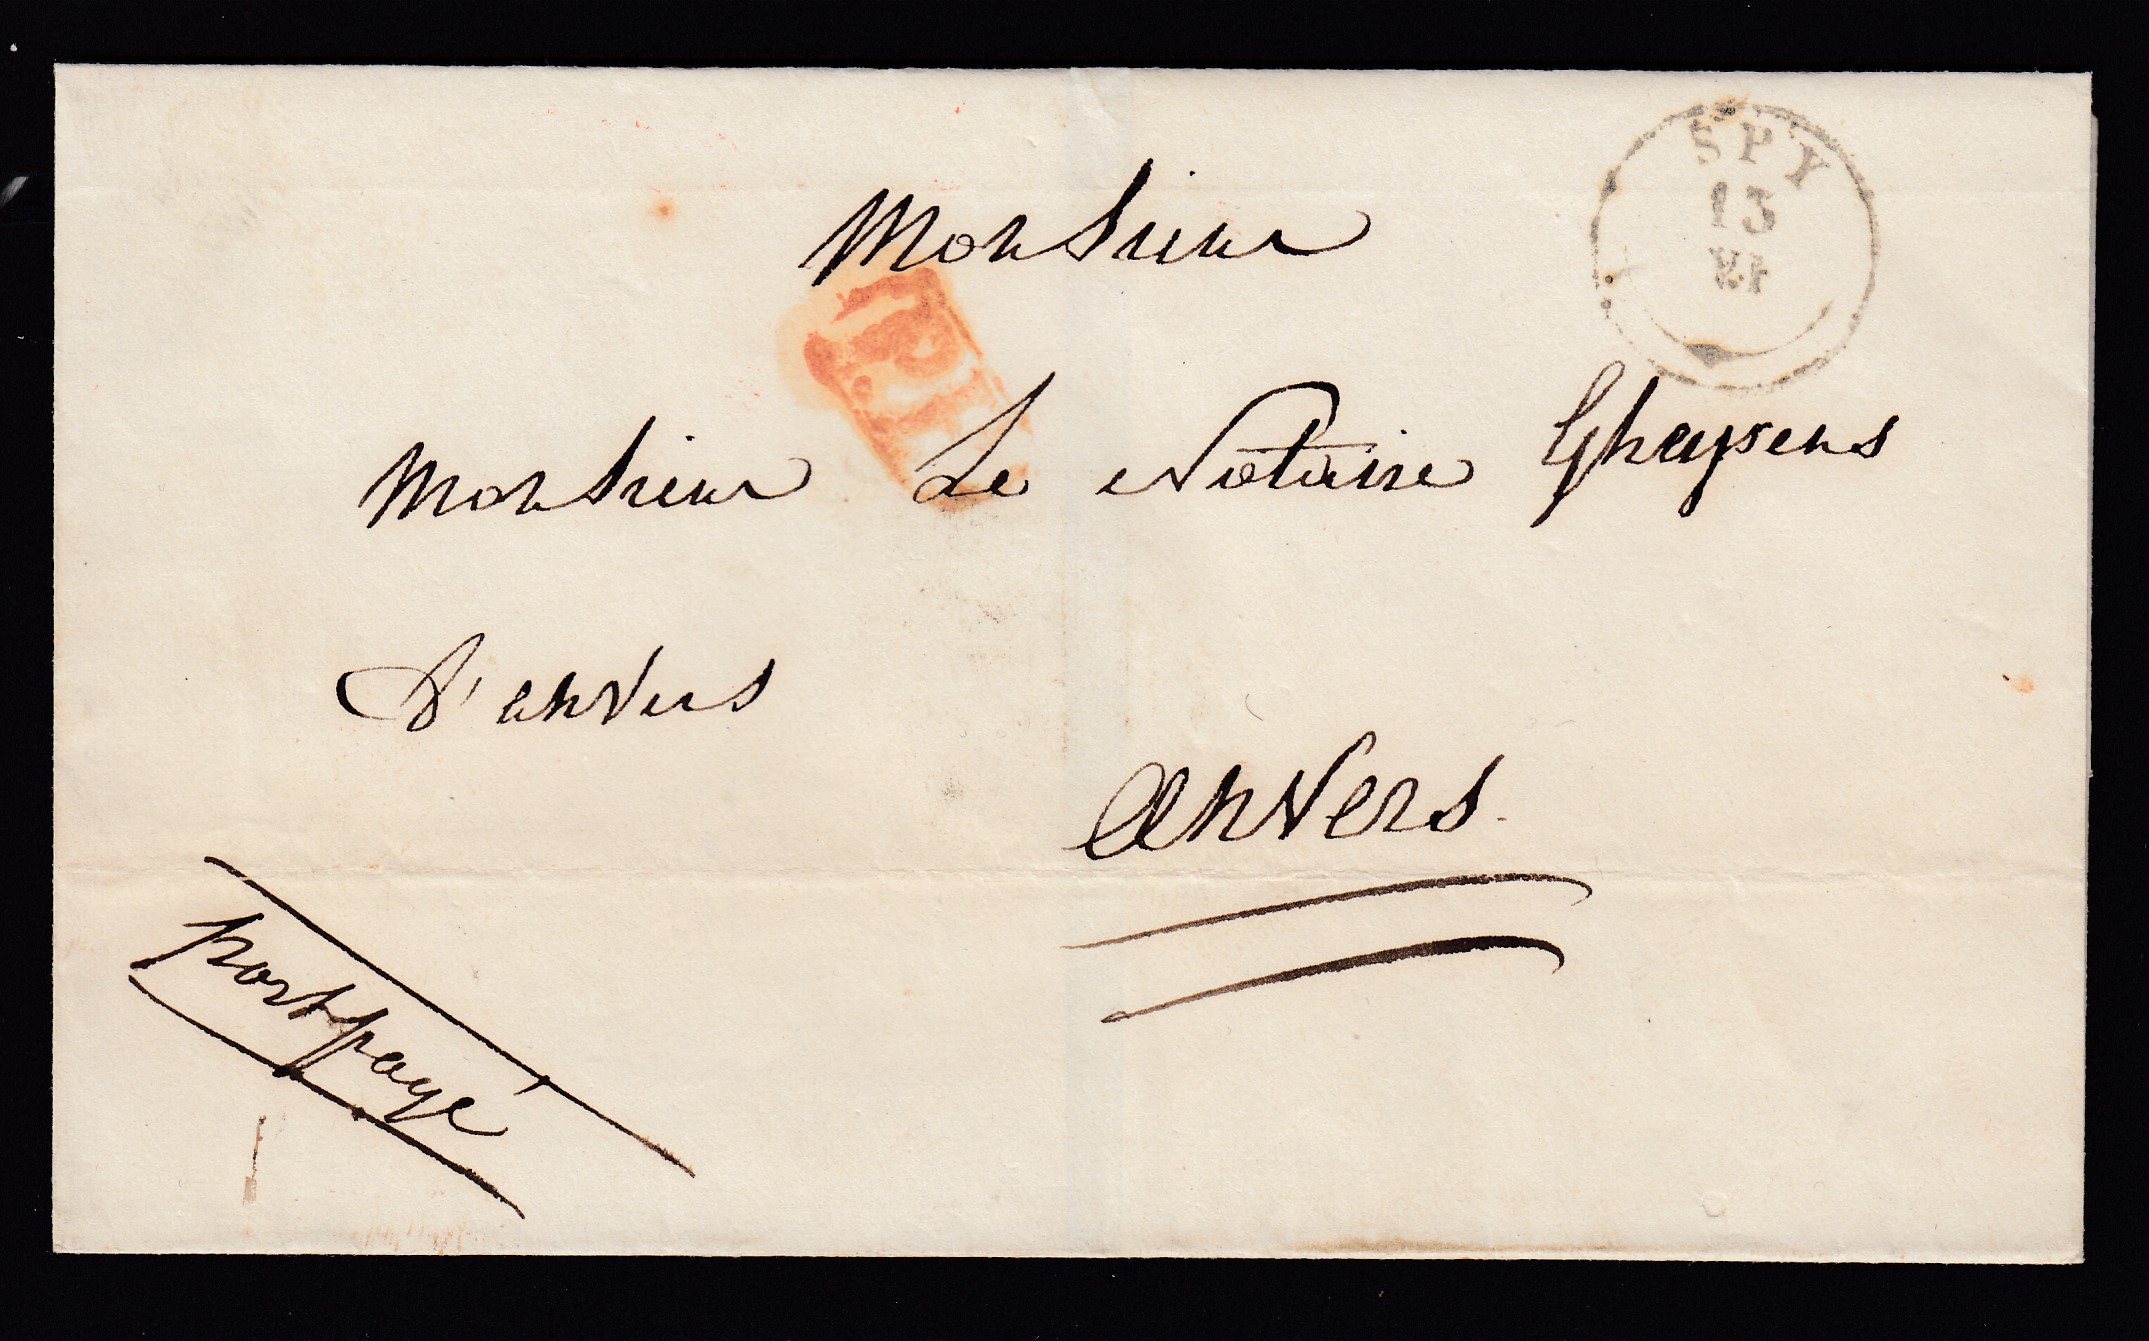 SPY
13
Monsieur
PP
Monsieur Le Notaire Gheysens
D'anvers
Anvers
port payé